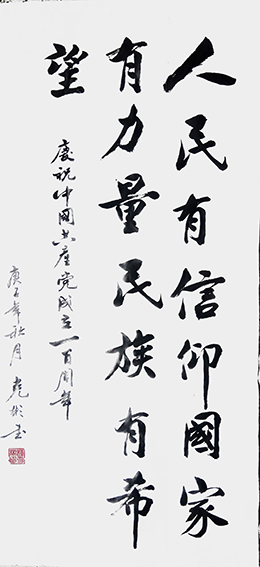 人民有信仰國家
有力量民族有希
望
慶祝中國共產党成立一百周年
庚子年秋月